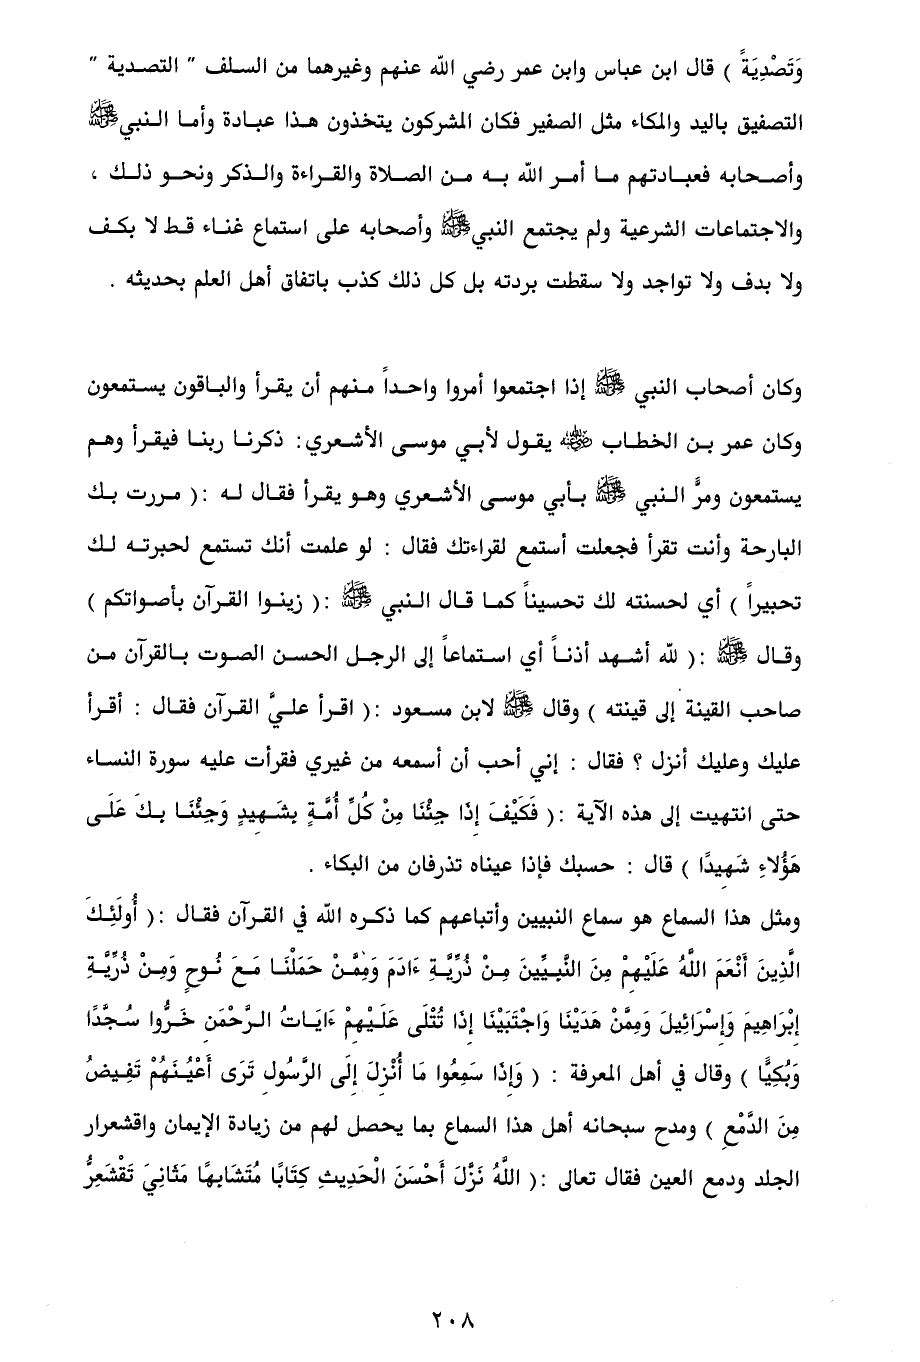 وَتَصْدِيَةً ) قال ابن عباس وابن عمر رضي الله عنهم وغيرهما من السلف " التصدية "
التصفيق باليد والمكاء مثل الصفير فكان المشركون يتخذون هذا عبادة وأما النبي ﷺ
وأصحابه فعبادتهم ما أمر الله به من الصلاة والقراءة والذكر ونحو ذلك ،
والاجتماعات الشرعية ولم يجتمع النبي ﷺ وأصحابه على استماع غناء قط لا بكف
ولا بدف ولا تواجد ولا سقطت بردته بل كل ذلك كذب باتفاق أهل العلم بحديثه .
وكان أصحاب النبي ﷺ إذا اجتمعوا أمروا واحداً منهم أن يقرأ والباقون يستمعون
وكان عمر بن الخطاب ﵁ يقول لأبي موسى الأشعري : ذكرنا ربنا فيقرأ وهم
يستمعون ومرَّ النبي ﷺ بأبي موسى الأشعري وهو يقرأ فقال له :( مررت بك
البارحة وأنت تقرأ فجعلت أستمع لقراءتك فقال : لو علمت أنك تستمع لحبرته لك
تحبيراً ) أي لحسنته لك تحسيناً كما قال النبي ﷺ :( زينوا القرآن بأصواتكم )
وقال ﷺ :( لله أشهد أذناً أي استماعاً إلى الرجل الحسن الصوت بالقرآن من
صاحب القينة إلى قينته ) وقال ﷺ لابن مسعود :( اقرأ عليَّ القرآن فقال : أقرأ
عليك وعليك أنزل ؟ فقال : إني أحب أن أسمعه من غيري فقرأت عليه سورة النساء
حتى انتهيت إلى هذه الآية :( فَكَيْفَ إِذَا جِئْنَا مِنْ كُلِّ أُمَّةٍ بِشَهِيدٍ وَجِئْنَا بِكَ عَلَى
هَؤُلاءِ شَهِيدًا ) قال : حسبك فإذا عيناه تذرفان من البكاء .
ومثل هذا السماع هو سماع النبيين وأتباعهم كما ذكره الله في القرآن فقال :( أُولَئِكَ
الَّذِينَ أَنْعَمَ اللَّهُ عَلَيْهِمْ مِنَ النَّبِيِّينَ مِنْ ذُرِّيَّةِ ءَادَمَ وَمِمَّنْ حَمَلْنَا مَعَ نُوحٍ وَمِنْ ذُرِّيَّةِ
إِبْرَاهِيمَ وَإِسْرَائِيلَ وَمِمَّنْ هَدَيْنَا وَاجْتَبَيْنَا إِذَا تُتْلَى عَلَيْهِمْ ءَايَاتُ الرَّحْمَنِ خَرُّوا سُجَّدًا
وَبُكِيًّا ) وقال في أهل المعرفة : ( وَإِذَا سَمِعُوا مَا أُنْزِلَ إِلَى الرَّسُولِ تَرَى أَعْيُنَهُمْ تَفِيضُ
مِنَ الدَّمْعِ ) ومدح سبحانه أهل هذا السماع بما يحصل لهم من زيادة الإيمان واقشعرار
الجلد ودمع العين فقال تعالى :( اللَّهُ نَزَّلَ أَحْسَنَ الْحَدِيثِ كِتَابًا مُتَشَابِهًا مَثَانِيَ تَقْشَعِرُّ
٢٠٨